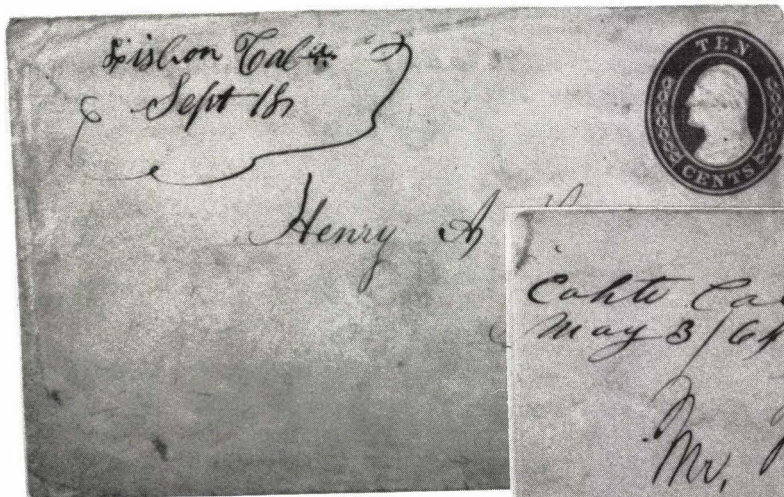 Lisbon Cal
Sept 18
TEN
CENTS
Henry A
May 3/64
Mr.